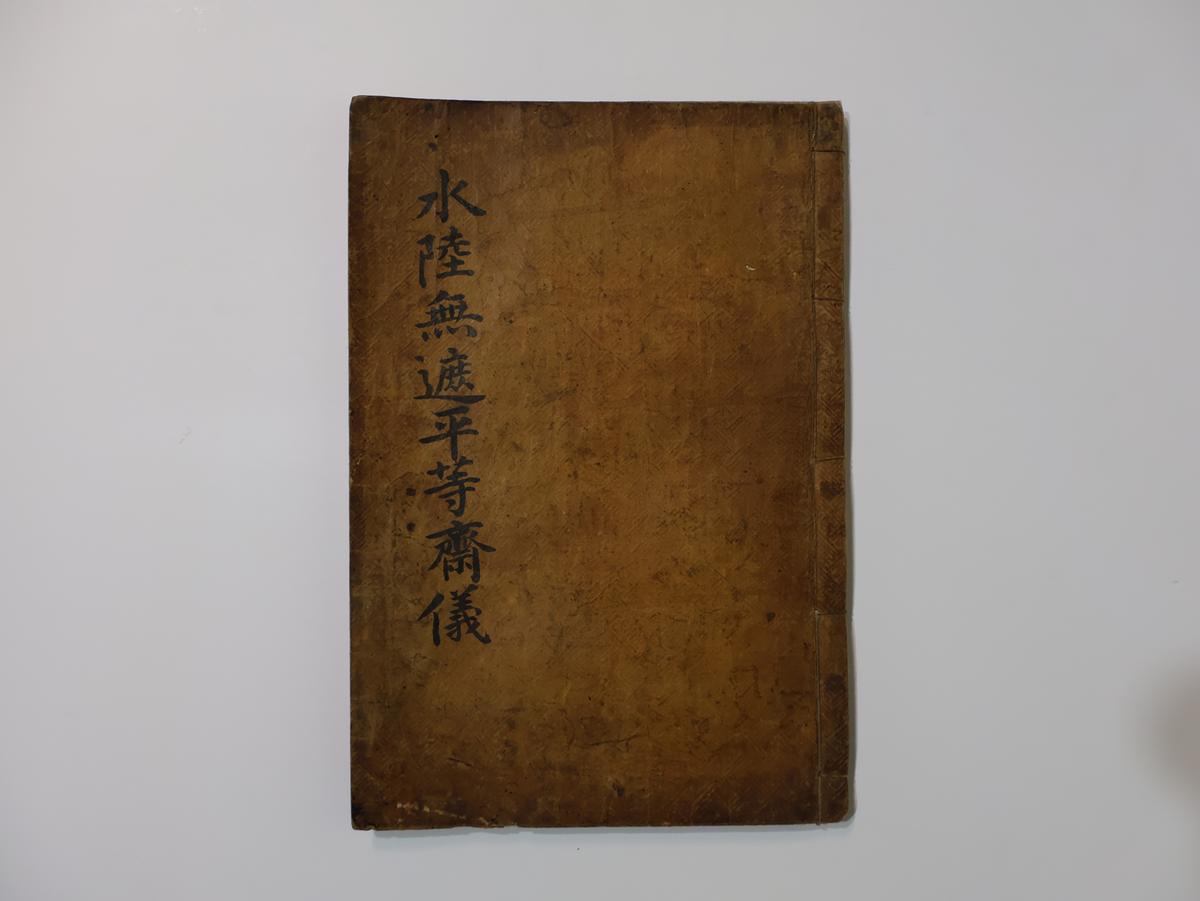 水陸無遮平等齋儀